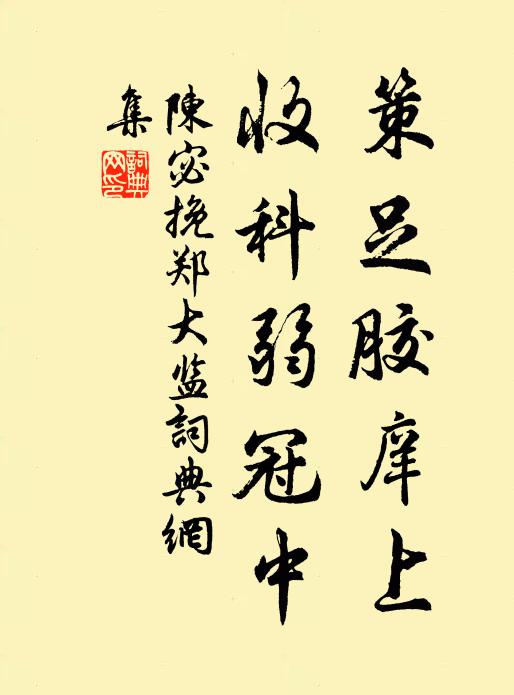 策足胶庠上
收科弱冠中
陳宓挽郑大监詞典網
集
詞典网印